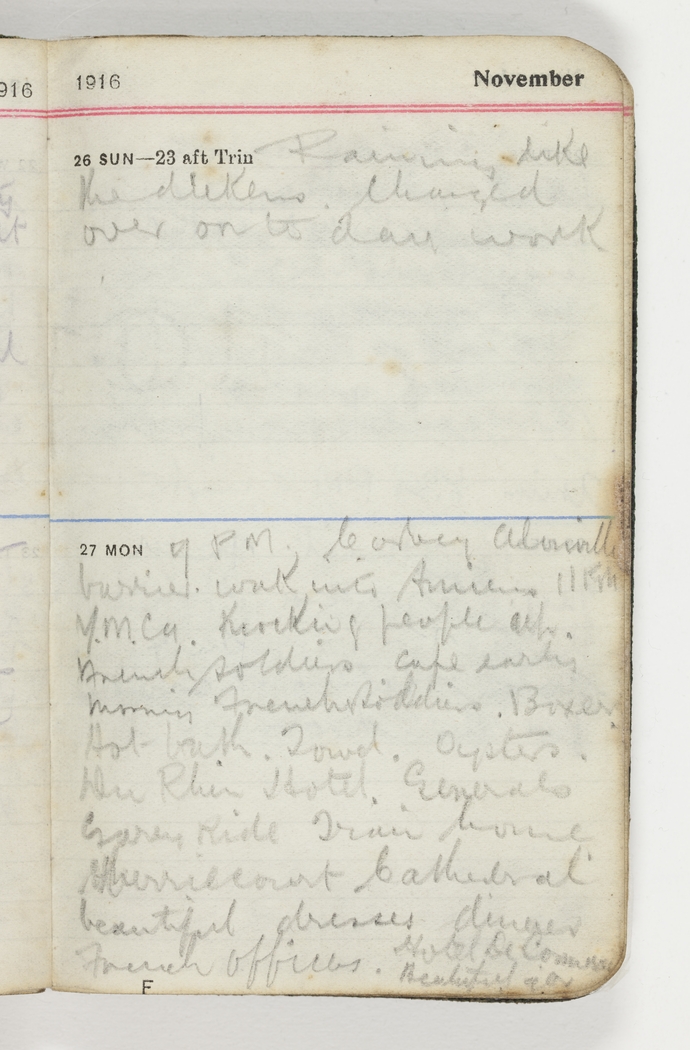 916
1916 November
26 SUN—23 aft Trin Raining like
the dickens. Changed
over on to day work
27 MON 9 P.M. Corbey
barrier. walk into Amiens 11 Km
Y.M.Ca. Knocking people up.
French soldiers cafe early
morning French soldiers. Boxer
Hot bath. Towel. Oysters.
Du Rhin Hotel. Generals
Ride Train home
Cathedral
beautiful dresses dinner
French Officers. Hotel De
Beautiful
F